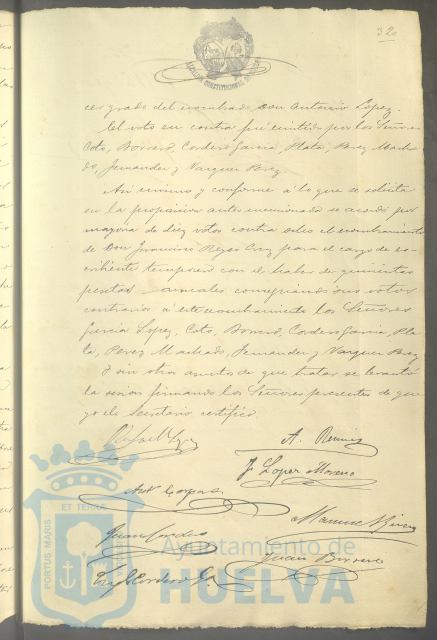 32
ALCALDIA CONSTITUCIONAL HUELVA
cer grado del nombrado Don Antonio Lopez.
El voto en contra fué emitido por los Señores
Coto, Borrero, Cordero Garcia, Plata, Perez Macha-
do, Fernandez y Vazquez Perez.
Asi mismo y conforme á lo que se solicita
en la proposicion antes mencionada se acordó por
mayoria de diez votos contra ocho el nombramiento
de Don Francisco Reyes Cruz para el cargo de es-
cribiente temporero con el haber de quinientas
pesetas anuales, consignando sus votos
contrarios á este nombramiento los Señores
Garcia Lopez, Coto, Borrero, Cordero Garcia, Pla-
ta, Perez Machado, Fernandez y Vazquez Perez.
Y sin otros asuntos de que tratar se levantó
la sesion firmando los Señores presentes de que
yo el Secretario certifico.
Rafael
A.
J. Lopez Moreno
Ant.
Manuel
Juan Cordero
Juan Borrero
Cordero Ga.
PORTUS MARIS
ET TERRÆ
Ayuntamiento de
HUELVA